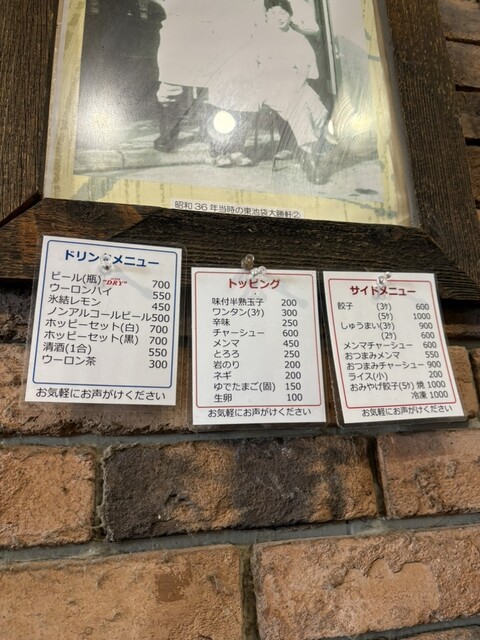 昭和36年当時の東池袋大勝軒②
ドリンクメニュー
ビール(瓶) "DRY" 700
ウーロンハイ 550
氷結レモン 450
ノンアルコールビール 500
ホッピーセット(白) 700
ホッピーセット(黒) 700
清酒(1合) 550
ウーロン茶 300
お気軽にお声がけください
トッピング
味付半熟玉子 200
ワンタン(3ケ) 300
辛味 250
チャーシュー 600
メンマ 450
とろろ 250
岩のり 200
ネギ 200
ゆでたまご(固) 150
生卵 100
お気軽にお声がけください
サイドメニュー
餃子 (3ケ) 600
(5ケ) 1000
しゅうまい(3ケ) 900
(2ケ) 600
メンマチャーシュー 600
おつまみメンマ 550
おつまみチャーシュー 900
ライス(小) 200
おみやげ餃子(5ケ) 焼 1000
冷凍 1000
お気軽にお声がけください